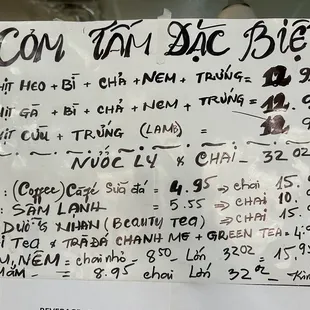 CƠM TẤM ĐẶC BIỆ
HỊT HEO + BÌ + CHẢ + NEM + TRỨNG = 12.9
HỊT GÀ + BÌ + CHẢ + NEM + TRỨNG = 12.
HỊT CỪU + TRỨNG (LAMB) = 12.9
NƯỚC LY & CHAI _ 32 OZ
: (Coffee) Café Sữa đá = 4.95 → chai 15.
: SÂM LẠNH = 5.55 → CHAI 10.
DƯỠNG NHAN (BEAUTY TEA) → CHAI 15.
I TEA & TRÀ ĐÁ CHANH ME + GREEN TEA = 4.
M, NÊM = chai nhỏ - 8.50 _ Lớn 32oz = 15.95
MẮM _ = 8.95 chai Lớn 32oz _ Kim